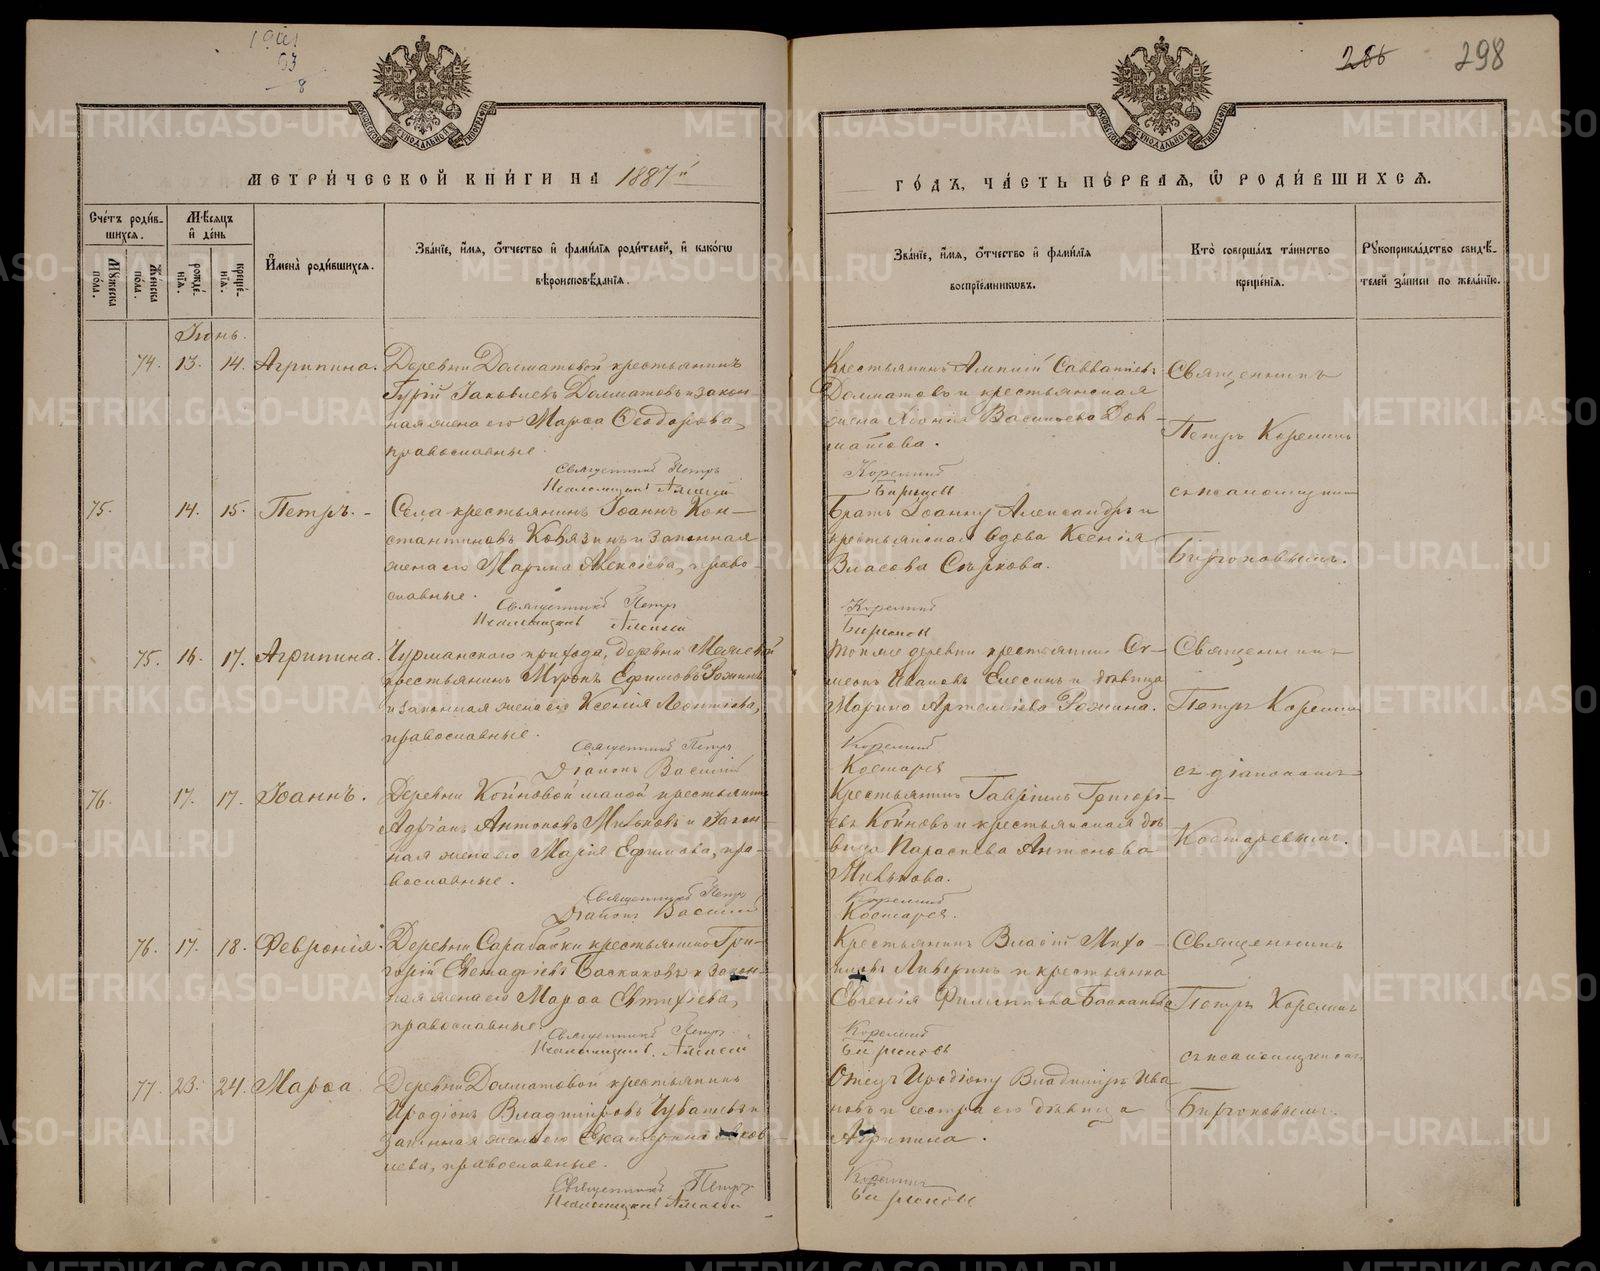 286 298
МЕТРИ́ЧЕСКОЙ КНИ́ГИ НА 1887й
ГО́ДЪ, ЧА́СТЬ ПЕ́РВАЯ, Ѡ҆ РОДИ́ВШИХСЯ.
Сче́тъ роди́в-
шихся.
Мѣ́сяцъ
и҆ де́нь
Мꙋ́жеска
по́ла.
Же́нска
по́ла.
рожде́-
нїя.
креще́-
нїя.
И҆мена̀ роди́вшихся.
Зва́нїе, и҆́мя, о҆́тчество и҆ фами́лїя роди́телей, и҆ како́гѡ
вѣроисповѣ́данїя.
Зва́нїе, и҆́мя, о҆́тчество и҆ фами́лїя
воспрїе́мникѡвъ.
Кто̀ соверша́лъ та́инство
креще́нїя.
Рꙋкоприкла́дство свидѣ́-
телей за́писи по жела́нїю.
Іюнь.
74. 13. 14. Агрипина.
Деревни Долматовой крестьянинъ
Гурій Іаковлевъ Долматовъ и закон-
ная жена его Марѳа Ѳеодорова,
православные.
Священникъ Петръ
Псаломщикъ Алексій
Крестьянинъ Савватіевъ
Долматовъ и крестьянская
жена Васильева Дол-
матова.
Корелинъ
Бирюковъ
Священникъ
Петръ Корелинъ
съ псаломщикомъ
Бирюковымъ.
75. 14. 15. Петръ.
Села крестьянинъ Іоаннъ Кон-
стантиновъ Ковязинъ и законная
жена его Марина Алексіева, право-
славные.
Священникъ Петръ
Псаломщикъ Алексій
Братъ Іоанну Александръ и
крестьянская вдова Ксенія
Власова Сѣркова.
Корелинъ
Бирюковъ
75. 16. 17. Агрипина.
Чурманскаго прихода, деревни
крестьянинъ Миронъ Ефимовъ Рожинъ
и законная жена его Ксенія Леонтіева,
православные.
Священникъ Петръ
Діаконъ Василій
Той же деревни крестьянинъ Си-
меонъ Ивановъ Елесинъ и дѣвица
Марина Артеміева Рожина.
Корелинъ
Костаревъ
Священникъ
Петръ Корелинъ
съ діакономъ
Костаревымъ.
76. 17. 17. Іоаннъ.
Деревни Койновой малой крестьянинъ
Адріанъ Антоновъ Мильковъ и закон-
ная жена его Марія Ефимова, пра-
вославные.
Священникъ Петръ
Діаконъ Василій
Крестьянинъ Гавріилъ Григорі-
евъ Койновъ и крестьянская дѣ-
вица Параскева Антонова
Милькова.
Корелинъ
Костаревъ.
76. 17. 18. Февронія.
Деревни Сарабайки крестьянинъ Гри-
горій Баскаковъ и закон-
ная жена его Марѳа Евтихіева,
православные.
Священникъ Петръ
Псаломщикъ Алексій
Крестьянинъ Власій Миха-
иловъ Аверинъ и крестьянка
Евгенія Филиппова Баскакова
Корелинъ
Бирюковъ
Священникъ
Петръ Корелинъ
съ псаломщикомъ
Бирюковымъ.
77. 23. 24. Марѳа
Деревни Долматовой крестьянинъ
Иродіонъ Владиміровъ и
законная жена его Екатерина Яков-
лева, православные.
Священникъ Петръ
Псаломщикъ Алексій
Отецъ Иродіону Владиміръ Ива-
новъ и сестра его дѣвица
Агрипина.
Корелинъ
Бирюковъ
METRIKI.GASO-URAL.RU